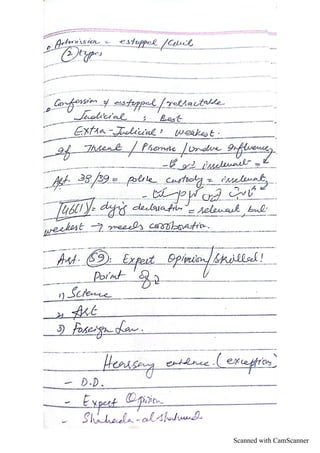 Admission = estoppel / Civil
(2) types
Confession ≠ estoppel / retractable
Judicial : Best
Extra-Judicial : weakest.
If Threat / Promise / undue Influence
irrelevant =
Art 38/39 = police custody = irrelevant
46(1) = dying declaration = relevant but
weakest → needs corroboration.
Art. (59): Expert Opinion / Skilled!
Point
1) Science
2) Art
3) Foreign Law.
Hearsay evidence. (exception)
- D.D.
- Expert Opinion
- Shahada-al
Scanned with CamScanner